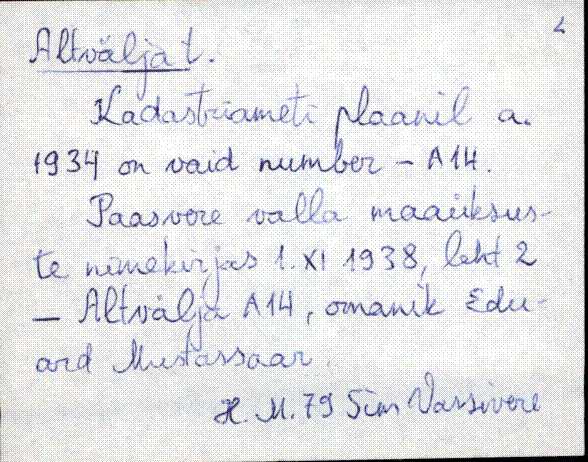 2
Altvälja t.
Kadastriameti plaanil a.
1934 on vaid number - A14.
Paasvere valla maaüksus-
te nimekirjas 1. XI 1938, leht 2
- Altvälja A14, omanik Edu-
ard Mustassaar.
H. M. 79 Sim Vassivere